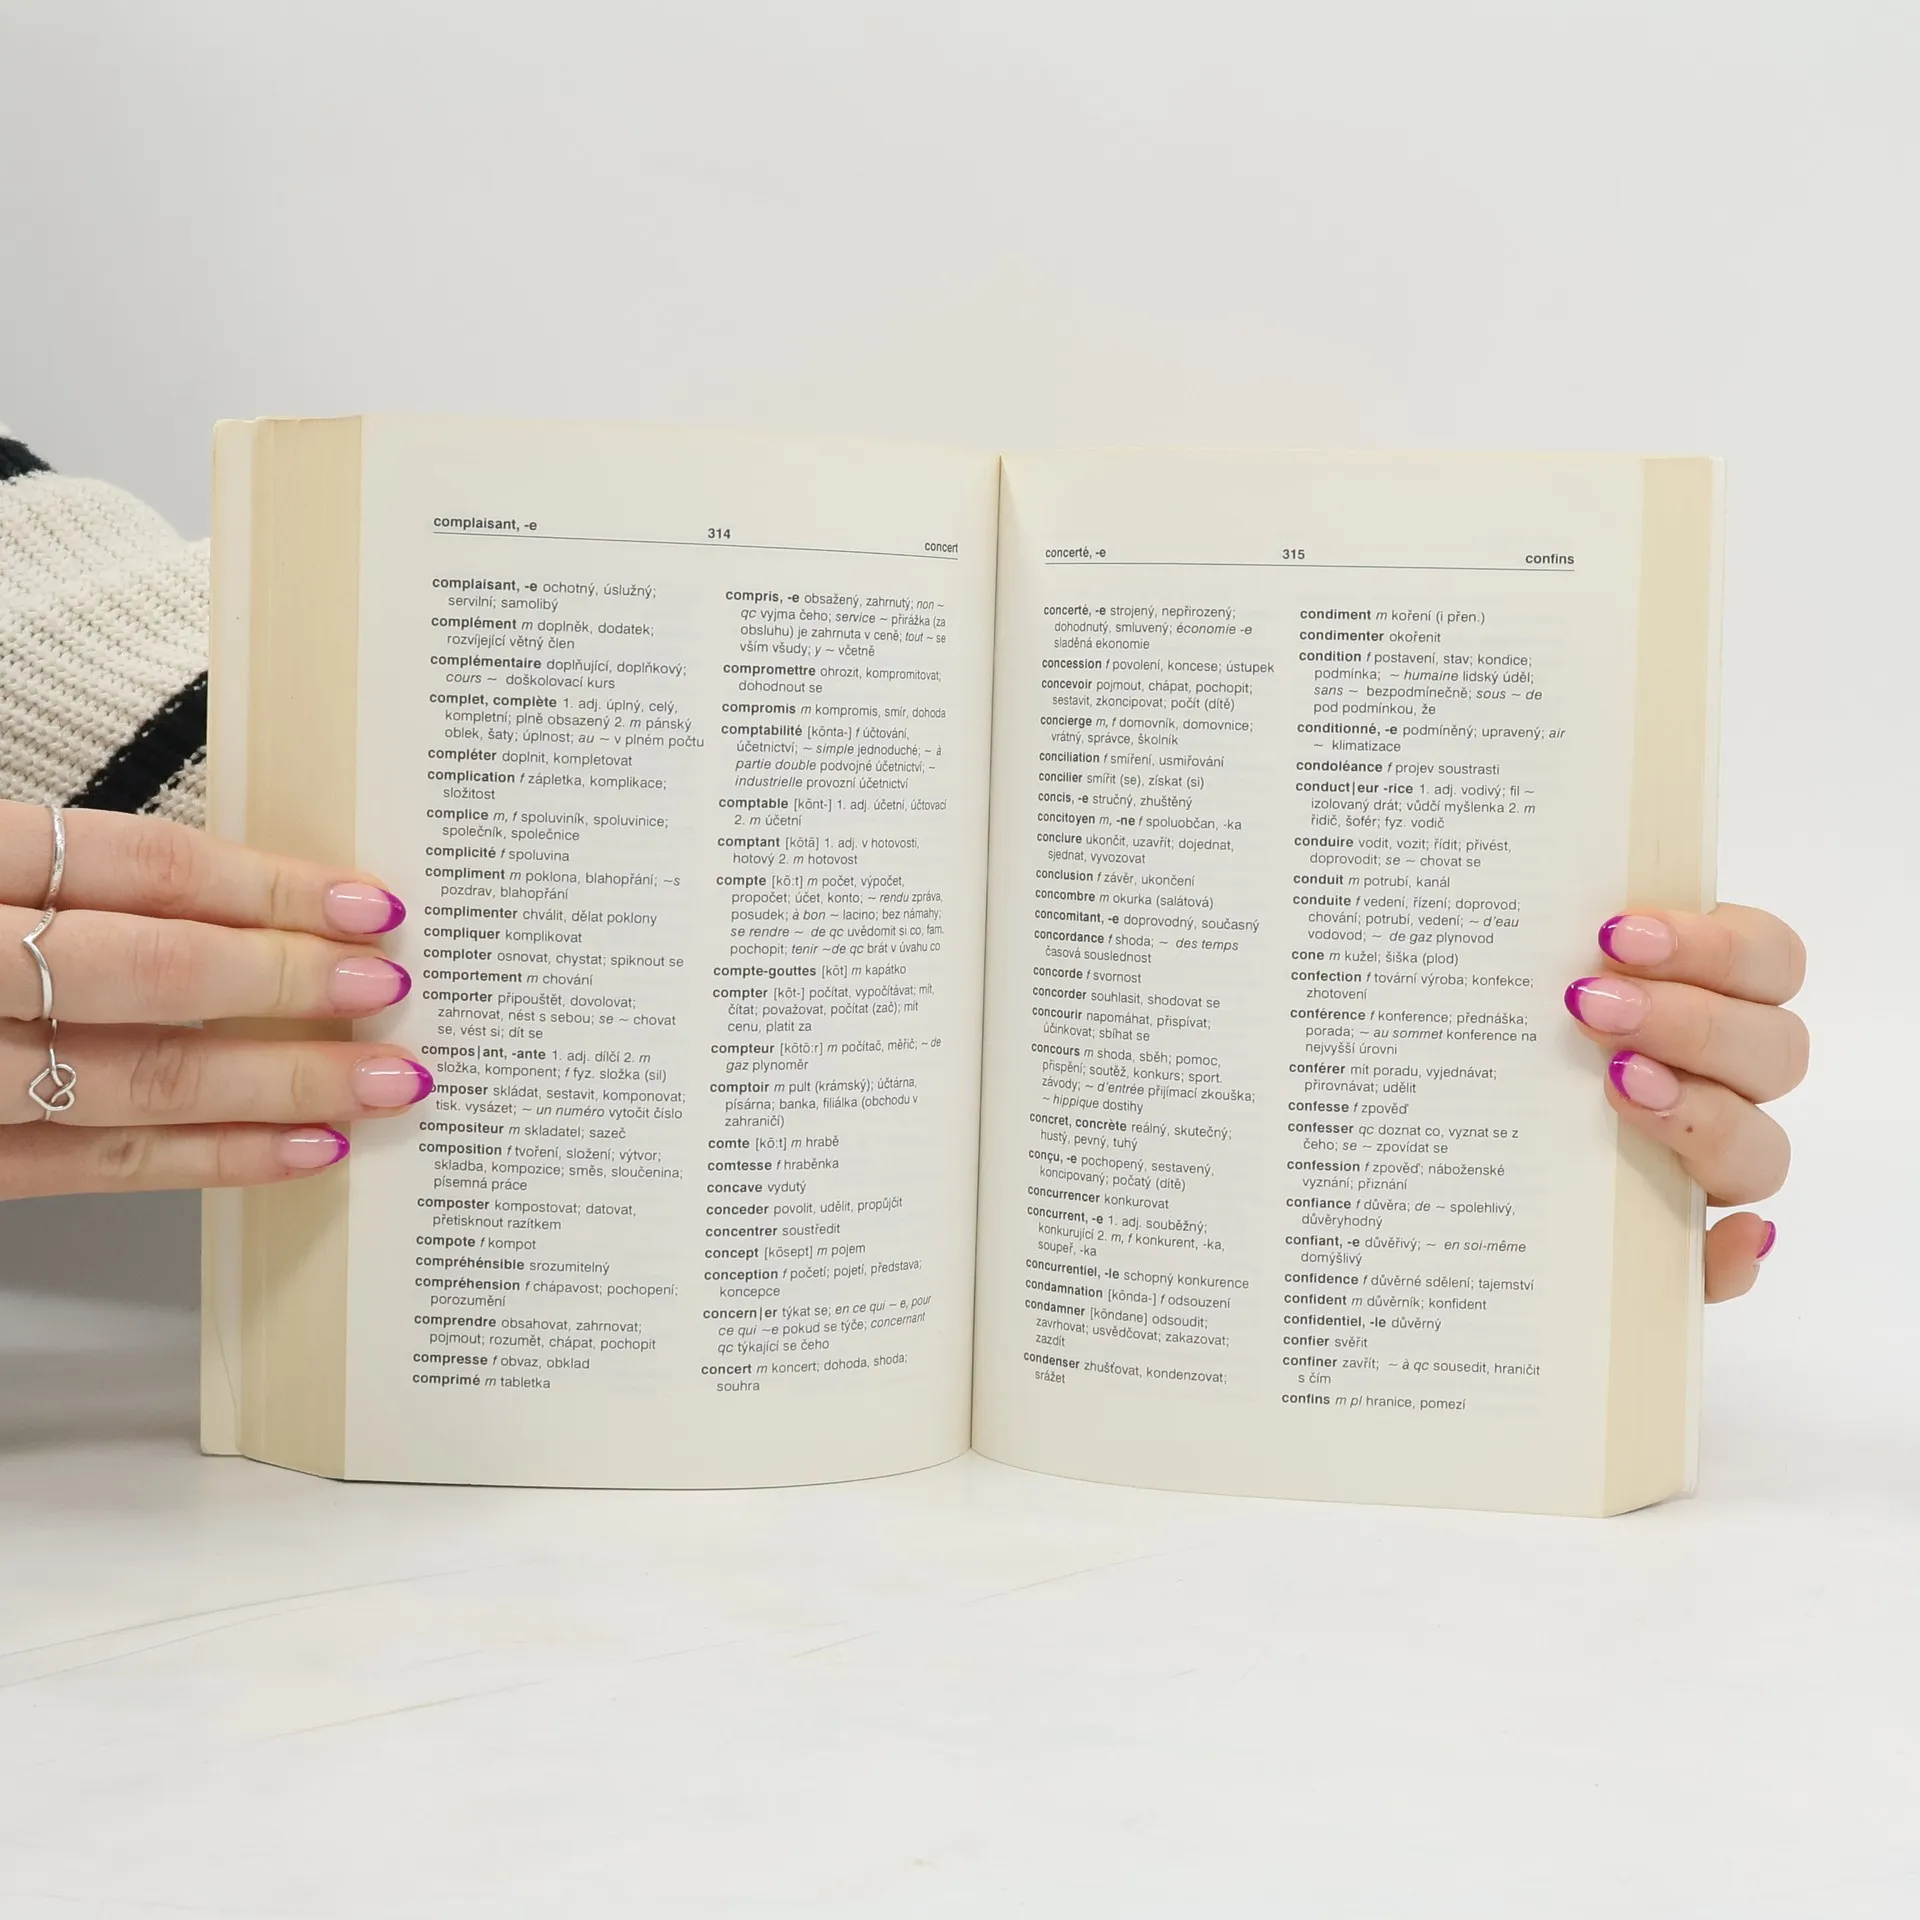 complaisant, -e
314
concert
complaisant, -e ochotný, úslužný;
servilní; samolibý
complément m doplněk, dodatek;
rozvíjející větný člen
complémentaire doplňující, doplňkový;
cours ~ doškolovací kurs
complet, complète 1. adj. úplný, celý,
kompletní; plně obsazený 2. m pánský
oblek, šaty; úplnost; au ~ v plném počtu
compléter doplnit, kompletovat
complication f zápletka, komplikace;
složitost
complice m, f spoluviník, spoluvinice;
společník, společnice
complicité f spoluvina
compliment m poklona, blahopřání; ~s
pozdrav, blahopřání
complimenter chválit, dělat poklony
compliquer komplikovat
comploter osnovat, chystat; spiknout se
comportement m chování
comporter připouštět, dovolovat;
zahrnovat, nést s sebou; se ~ chovat
se, vést si; dít se
compos|ant, -ante 1. adj. dílčí 2. m
složka, komponent; f fyz. složka (sil)
omposer skládat, sestavit, komponovat;
tisk. vysázet; ~ un numéro vytočit číslo
compositeur m skladatel; sazeč
composition f tvoření, složení; výtvor;
skladba, kompozice; směs, sloučenina;
písemná práce
composter kompostovat; datovat,
přetisknout razítkem
compote f kompot
compréhénsible srozumitelný
compréhension f chápavost; pochopení;
porozumění
comprendre obsahovat, zahrnovat;
pojmout; rozumět, chápat, pochopit
compresse f obvaz, obklad
comprimé m tabletka
compris, -e obsažený, zahrnutý; non ~
qc vyjma čeho; service ~ přirážka (za
obsluhu) je zahrnuta v ceně; tout ~ se
vším všudy; y ~ včetně
compromettre ohrozit, kompromitovat;
dohodnout se
compromis m kompromis, smír, dohoda
comptabilité [kõnta-] f účtování,
účetnictví; ~ simple jednoduché; ~ à
partie double podvojné účetnictví; ~
industrielle provozní účetnictví
comptable [kõnt-] 1. adj. účetní, účtovací
2. m účetní
comptant [kõtã] 1. adj. v hotovosti,
hotový 2. m hotovost
compte [kõ:t] m počet, výpočet,
propočet; účet, konto; ~ rendu zpráva,
posudek; à bon ~ lacino; bez námahy;
se rendre ~ de qc uvědomit si co, fam.
pochopit; tenir ~de qc brát v úvahu co
compte-gouttes [kõt] m kapátko
compter [kõt-] počítat, vypočítávat; mít,
čítat; považovat, počítat (zač); mít
cenu, platit za
compteur [kõtö:r] m počítač, měřič; ~ de
gaz plynoměr
comptoir m pult (krámský); účtárna,
písárna; banka, filiálka (obchodu v
zahraničí)
comte [kõ:t] m hrabě
comtesse f hraběnka
concave vydutý
conceder povolit, udělit, propůjčit
concentrer soustředit
concept [kõsept] m pojem
conception f početí; pojetí, představa;
koncepce
concern|er týkat se; en ce qui ~ e, pour
ce qui ~e pokud se týče; concernant
qc týkající se čeho
concert m koncert; dohoda, shoda;
souhra
concerté, -e
315
confins
concerté, -e strojený, nepřirozený;
dohodnutý, smluvený; économie -e
sladěná ekonomie
concession f povolení, koncese; ústupek
concevoir pojmout, chápat, pochopit;
sestavit, zkoncipovat; počít (dítě)
concierge m, f domovník, domovnice;
vrátný, správce, školník
conciliation f smíření, usmiřování
concilier smířit (se), získat (si)
concis, -e stručný, zhuštěný
concitoyen m, -ne f spoluobčan, -ka
conclure ukončit, uzavřít; dojednat,
sjednat, vyvozovat
conclusion f závěr, ukončení
concombre m okurka (salátová)
concomitant, -e doprovodný, současný
concordance f shoda; ~ des temps
časová souslednost
concorde f svornost
concorder souhlasit, shodovat se
concourir napomáhat, přispívat;
účinkovat; sbíhat se
concours m shoda, sběh; pomoc,
přispění; soutěž, konkurs; sport.
závody; ~ d'entrée přijímací zkouška;
~ hippique dostihy
concret, concrète reálný, skutečný;
hustý, pevný, tuhý
conçu, -e pochopený, sestavený,
koncipovaný; počatý (dítě)
concurrencer konkurovat
concurrent, -e 1. adj. souběžný;
konkurující 2. m, f konkurent, -ka,
soupeř, -ka
concurrentiel, -le schopný konkurence
condamnation [kõnda-] f odsouzení
condamner [kõndane] odsoudit;
zavrhovat; usvědčovat; zakazovat;
zazdít
condenser zhušťovat, kondenzovat;
srážet
condiment m koření (i přen.)
condimenter okořenit
condition f postavení, stav; kondice;
podmínka; ~ humaine lidský úděl;
sans ~ bezpodmínečně; sous ~ de
pod podmínkou, že
conditionné, -e podmíněný; upravený; air
~ klimatizace
condoléance f projev soustrasti
conduct|eur -rice 1. adj. vodivý; fil ~
izolovaný drát; vůdčí myšlenka 2. m
řidič, šofér; fyz. vodič
conduire vodit, vozit; řídit; přivést,
doprovodit; se ~ chovat se
conduit m potrubí, kanál
conduite f vedení, řízení; doprovod;
chování; potrubí, vedení; ~ d'eau
vodovod; ~ de gaz plynovod
cone m kužel; šiška (plod)
confection f tovární výroba; konfekce;
zhotovení
conférence f konference; přednáška;
porada; ~ au sommet konference na
nejvyšší úrovni
conférer mít poradu, vyjednávat;
přirovnávat; udělit
confesse f zpověď
confesser qc doznat co, vyznat se z
čeho; se ~ zpovídat se
confession f zpověď; náboženské
vyznání; přiznání
confiance f důvěra; de ~ spolehlivý,
důvěryhodný
confiant, -e důvěřivý; ~ en soi-même
domýšlivý
confidence f důvěrné sdělení; tajemství
confident m důvěrník; konfident
confidentiel, -le důvěrný
confier svěřit
confiner zavřít; ~ à qc sousedit, hraničit
s čím
confins m pl hranice, pomezí